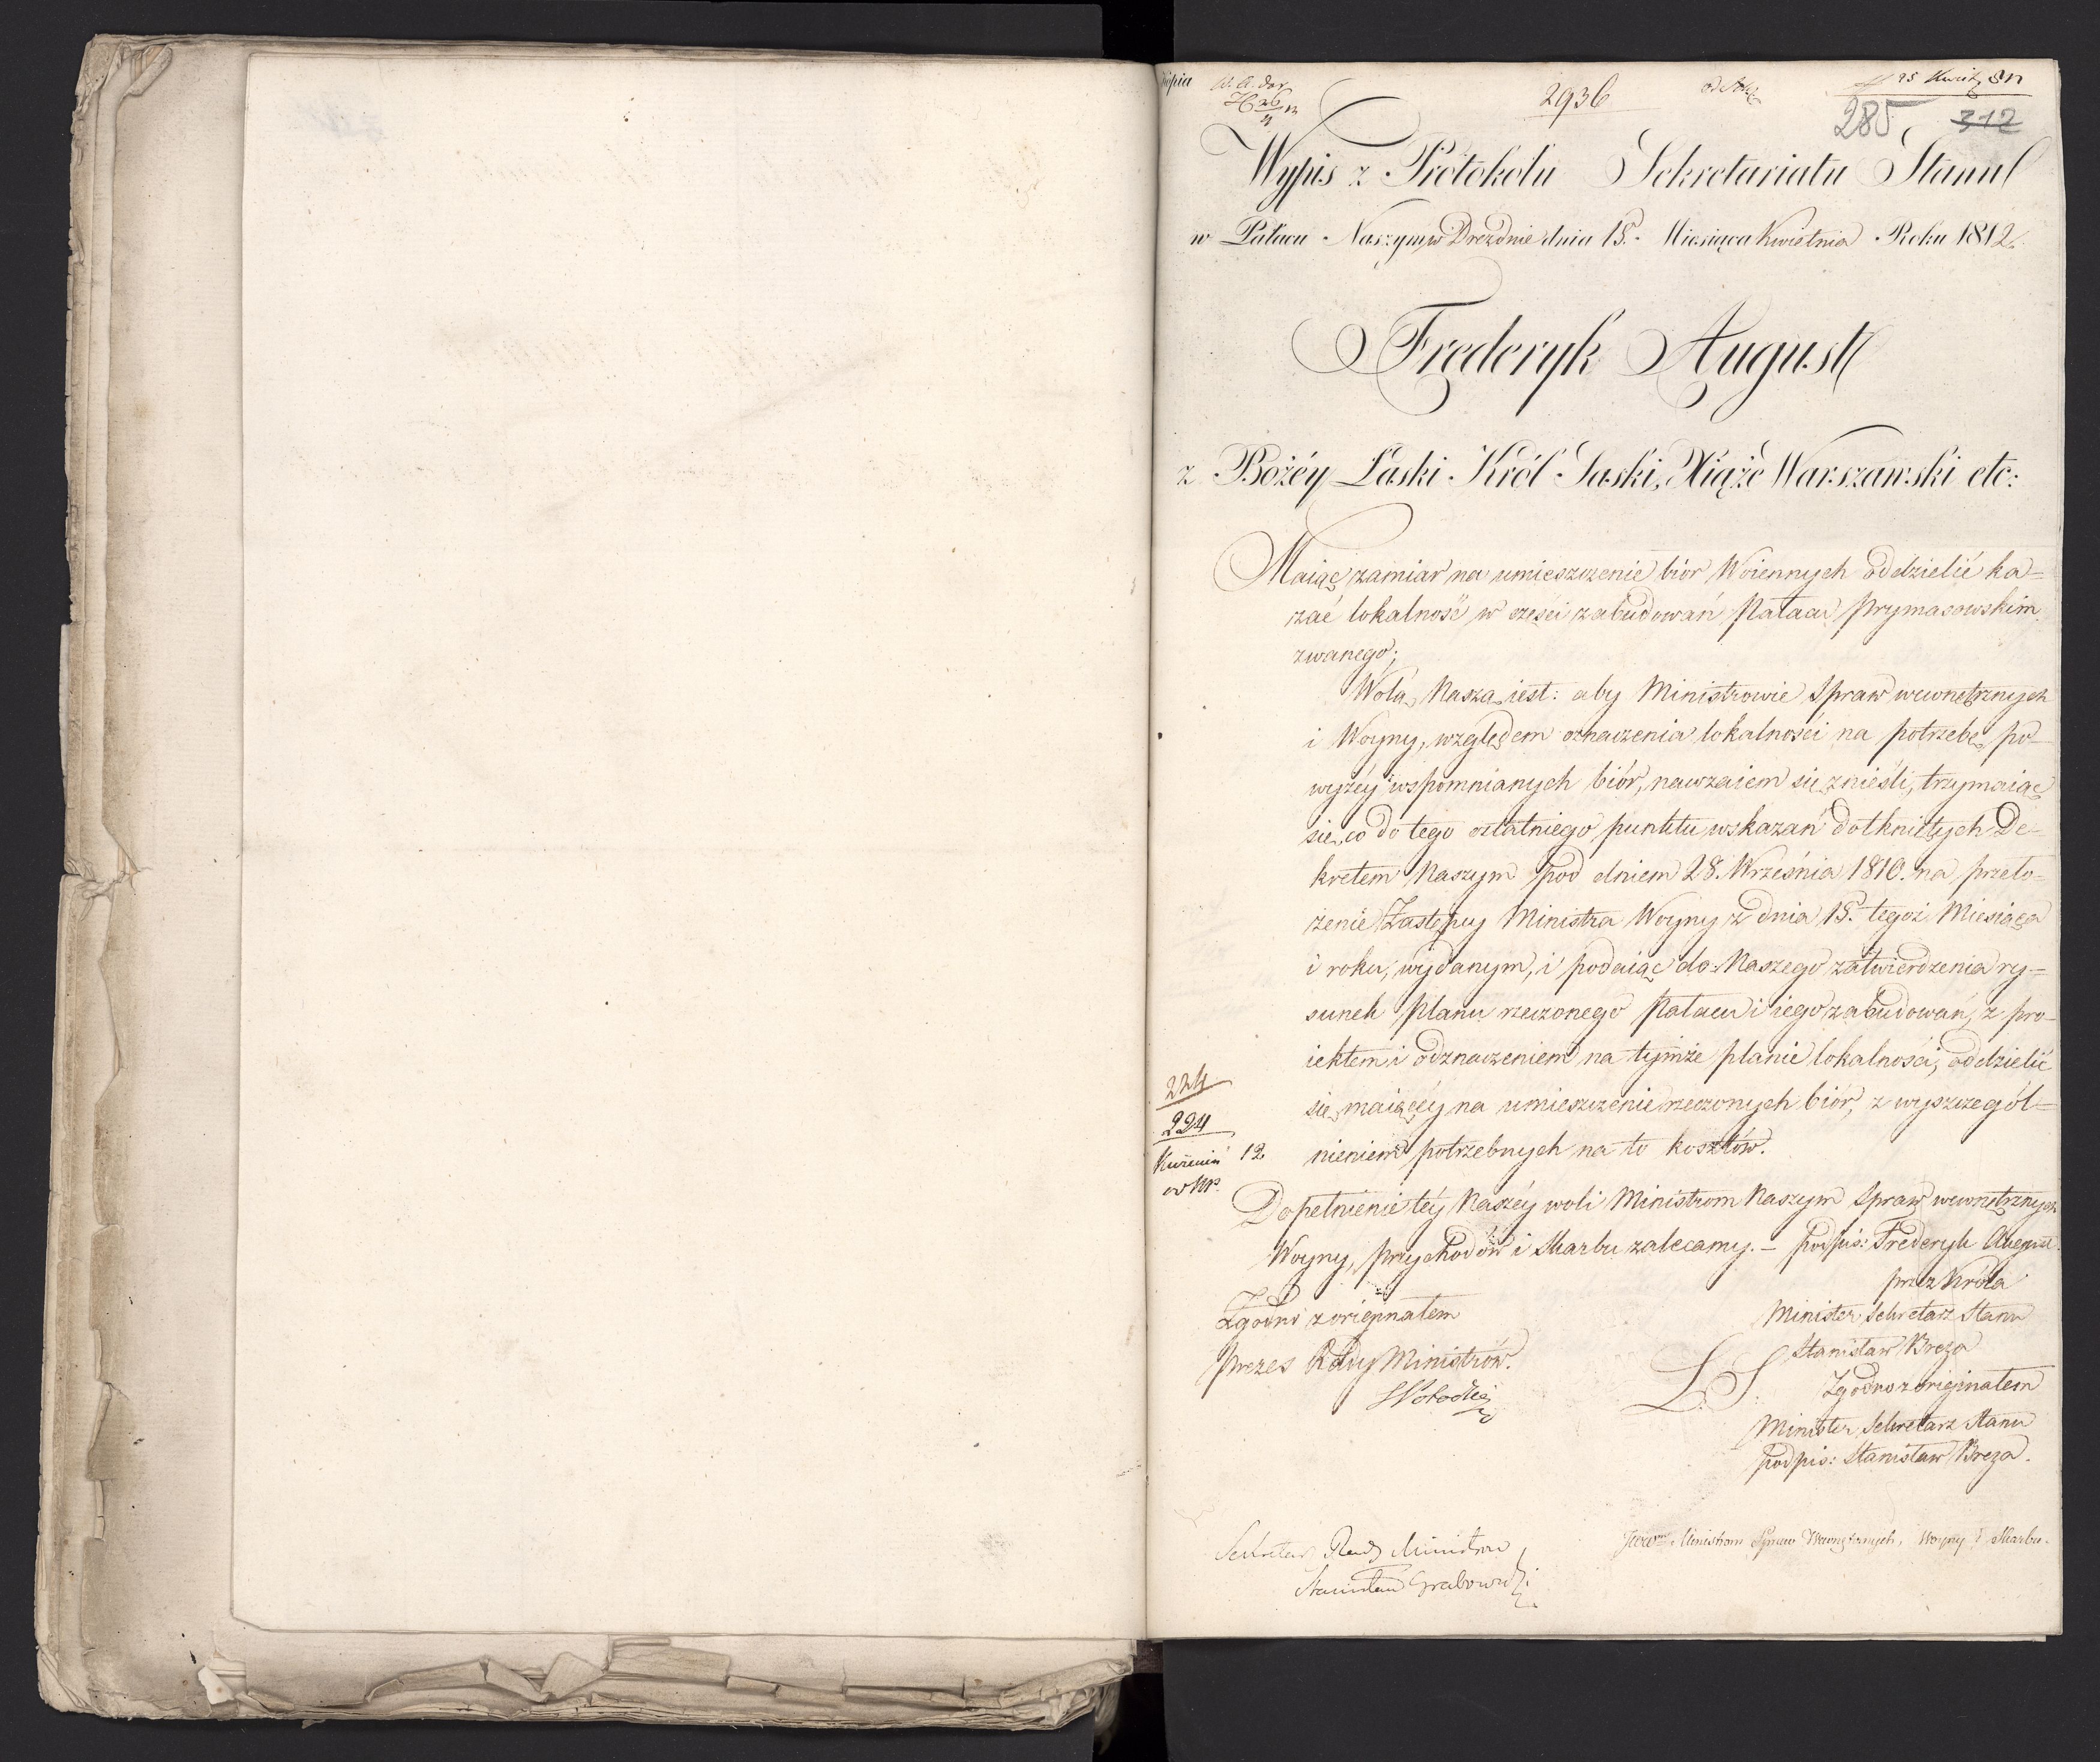 Kopia
2936
25 Kwiet 812
285 312
Wypis z Protokołu Sekretariatu Stanu
w Pałacu Naszym w Dreznie dnia 15. Miesiąca Kwietnia Roku 1812.
Frederyk August
z Bożéy Łaski Król Saski, Xiąże Warszawski etc:
Maiąc zamiar na umieszczenie biór Woiennych oddzielić ka=
zać lokalność w części zabudowań Pałacu prymasowskim
zwanego;
Wolą Naszą iest: aby Ministrowie Spraw wewnętrznych
i Woyny, względem oznaczenia lokalności na potrzebę po-
wyżéy wspomnianych biór, nawzaiem się znieśli, trzymaiąc
się, co do tego ostatniego punktu, wskazań dotkniętych De-
kretem Naszym pod dniem 28. Września 1810. na przeło=
żenie Zastępcy Ministra Woyny z dnia 15. tegoż Miesiąca
i roku, wydanym, i podaiąc do Naszego zatwierdzenia ry=
sunek planu rzeczonego Pałacu i iego zabudowań, z pro-
iektem i odznaczeniem na tymże planie lokalności, oddzielić
się maiącéy na umieszczenie rzeczonych biór, z wyszczegól=
nieniem potrzebnych na to kosztów.
224
224
12
Dopełnienie téy Naszéy woli Ministrom Naszym Spraw wewnętrznych
Woyny, przychodów i Skarbu zalecamy. – podpis: Frederyk August.
przez Króla
Minister Sekretarz Stanu
Stanisław Breza
L. S. Zgodno z originałem
Minister Sekretarz Stanu
podpis: Stanisław Breza.
Zgodno z originałem
Prezes Rady Ministrów.
Sekretarz Rady Ministrów
Stanisław Grabowski
Ministrom Spraw Wewnętrznych, Woyny i Skarbu.